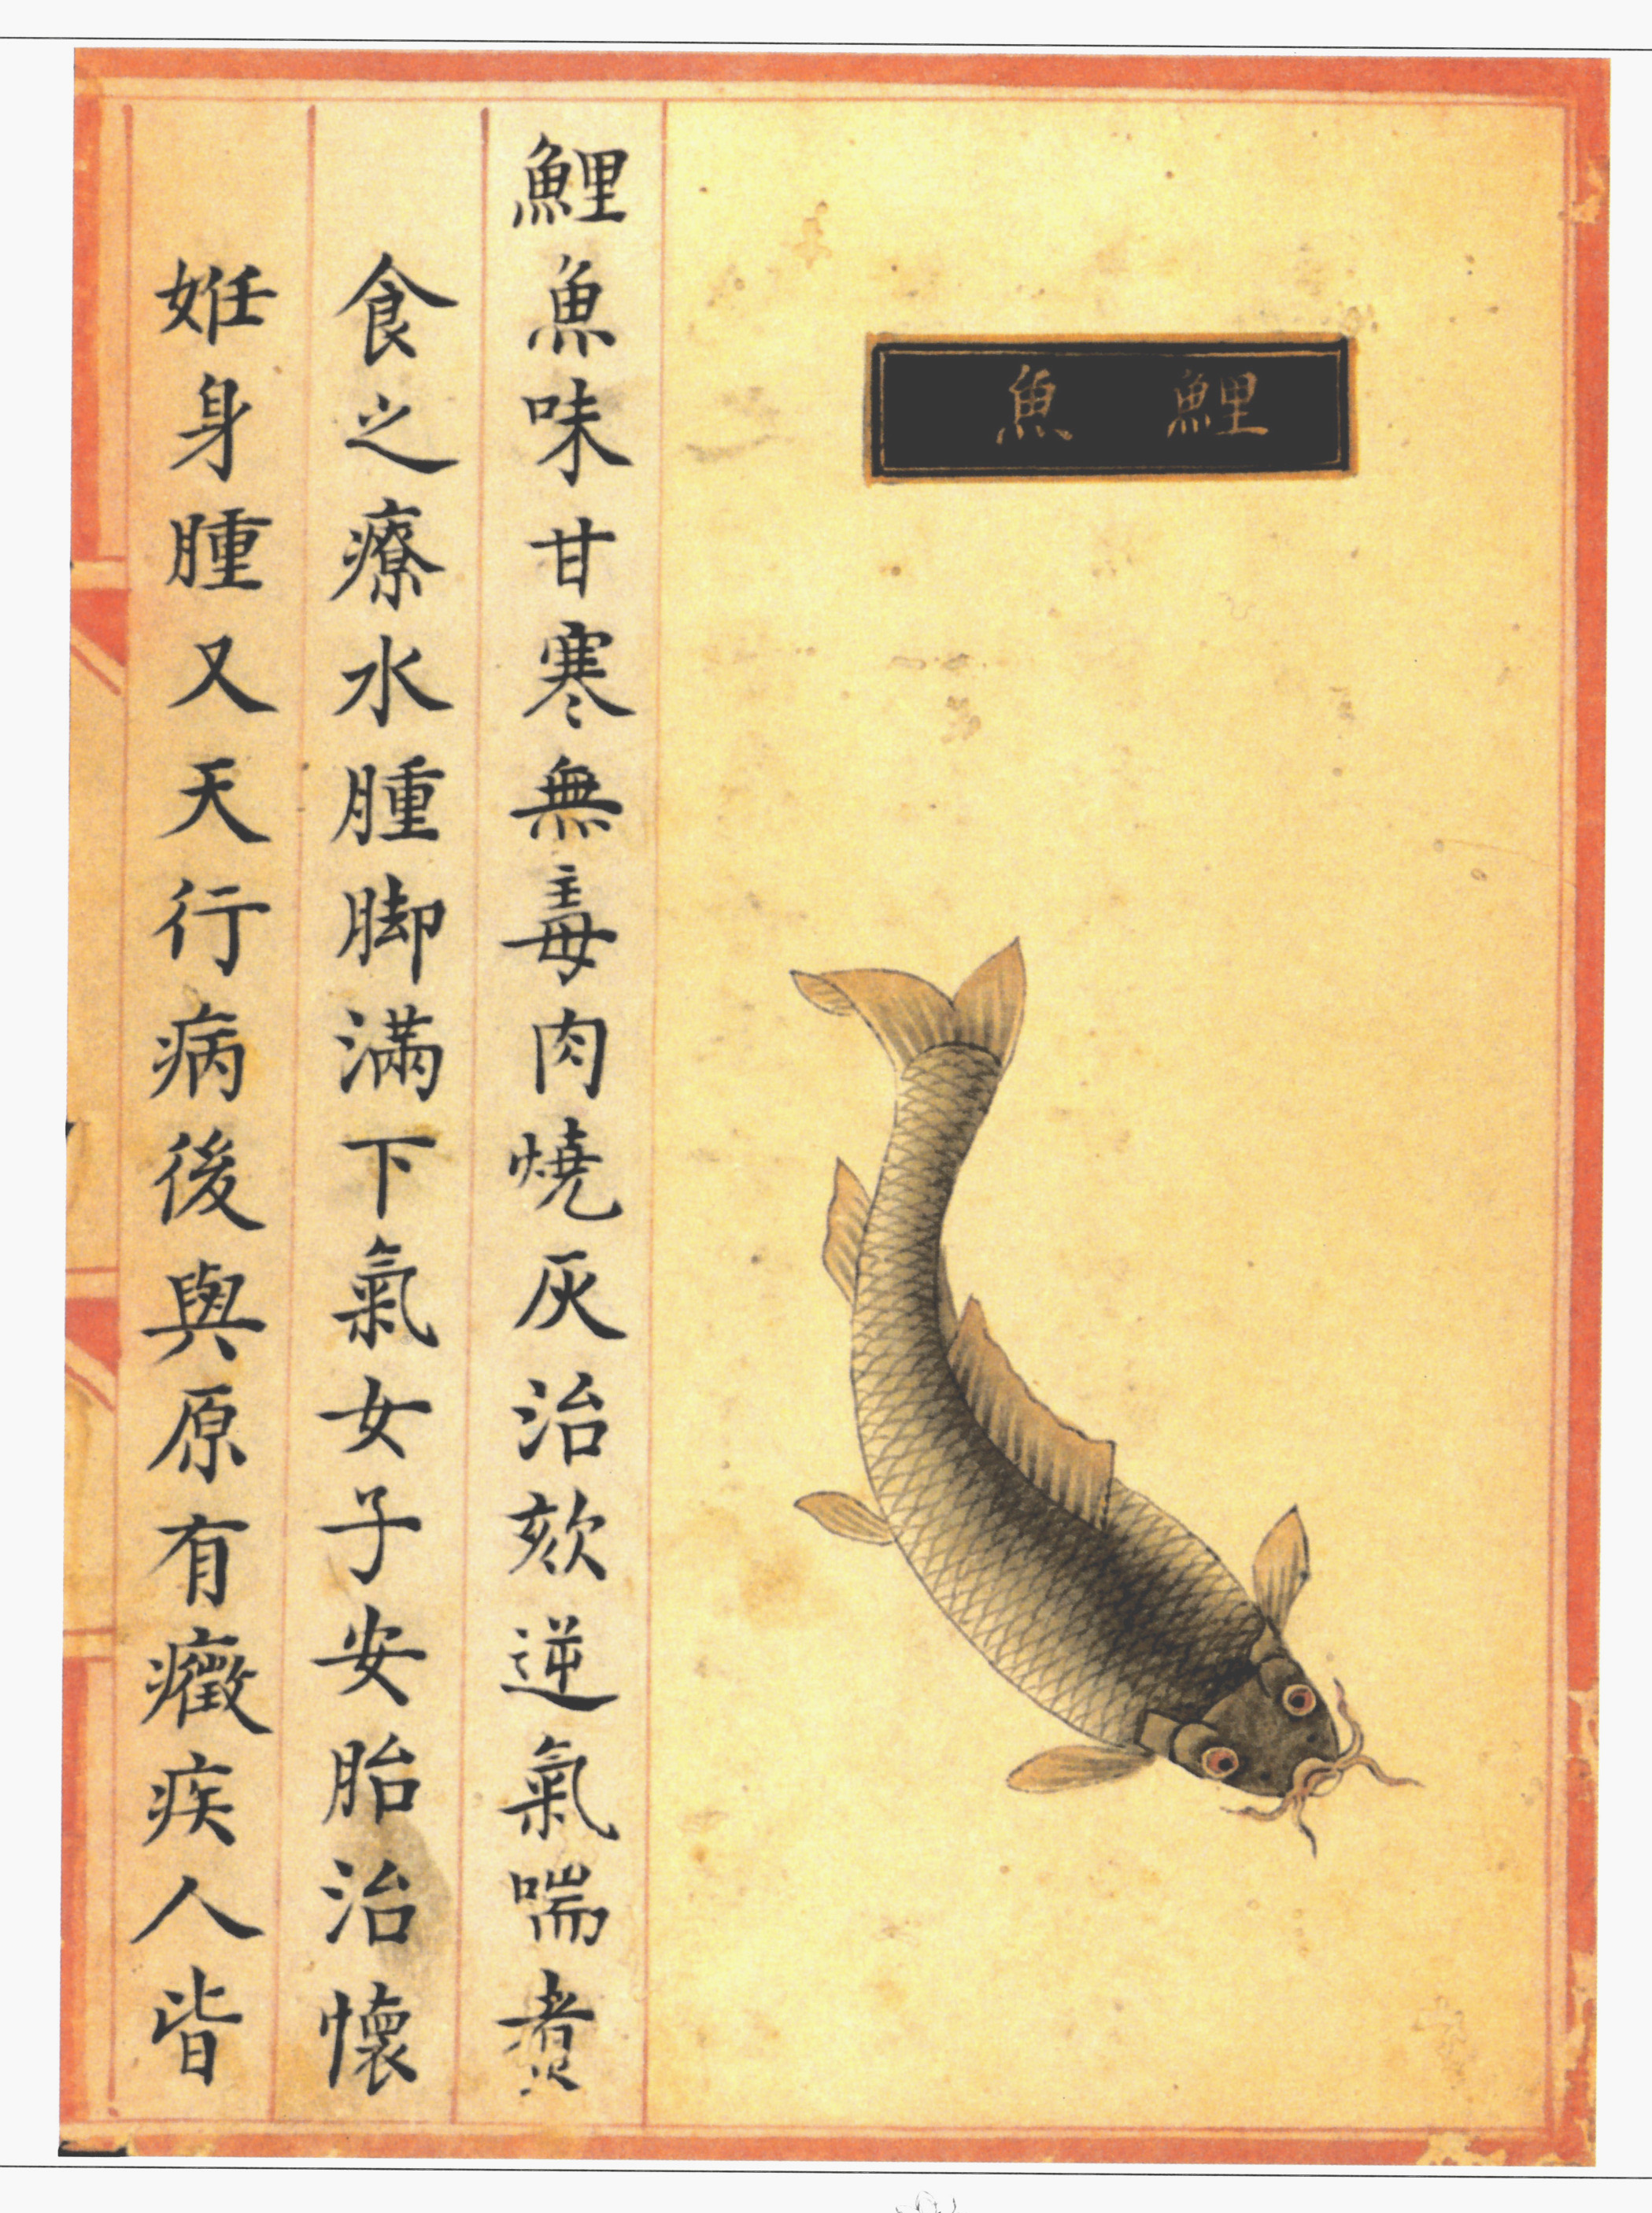 鯉魚
鯉魚味甘寒無毒肉燒灰治欬逆氣喘煑
食之療水腫脚滿下氣女子安胎治懷
姙身腫又天行病後與原有癥疾人皆